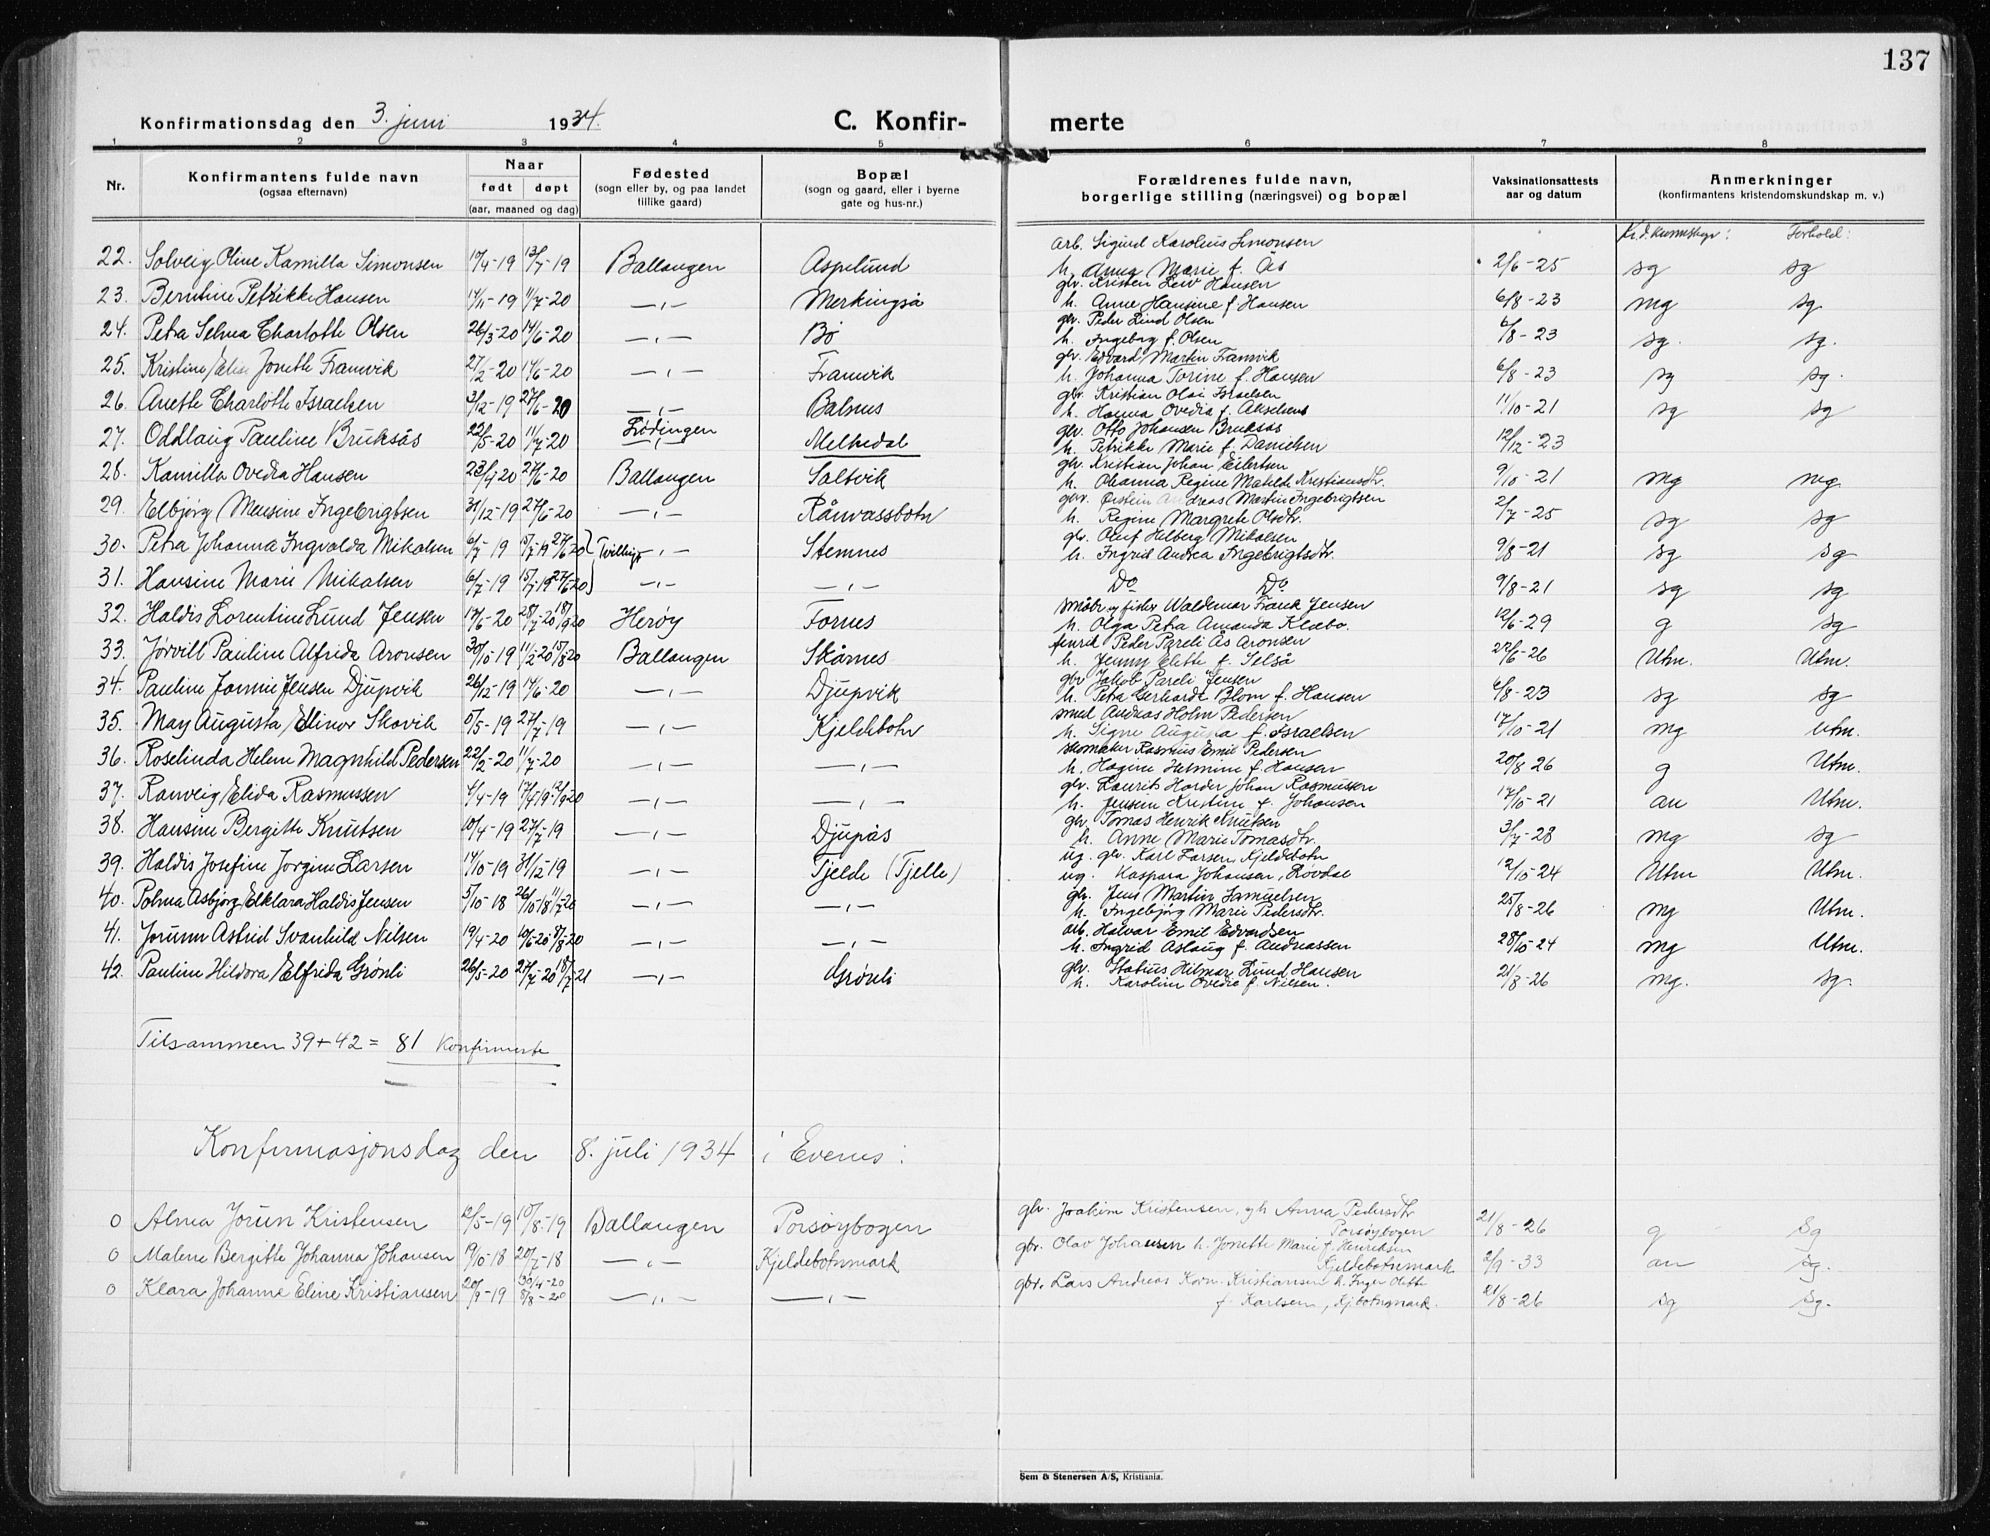 137
Konfirmationsdag den 3. juni 1934. C. Konfirmerte
1 2 3 4 5 6 7 8
Nr. Konfirmantens fulde navn (ogsaa efternavn) Naar født døpt (aar, maaned og dag) Fødested (sogn eller by, og paa landet tillike gaard) Bopæl (sogn og gaard, eller i byerne gate og hus-nr.) Forældrenes fulde navn, borgerlige stilling (næringsvei) og bopæl Vaksinationsattests aar og datum Anmerkninger (konfirmantens kristendomskundskap m. v.)
Forhold:
22. Solveig Oline Kamilla Simonsen 10/4-19 13/7-19 Ballangen Aspelund arb. Sigurd Karolius Simonsen h. Anna Marie f. Ås 2/6-25 sg sg
23. Berntine Petrikke Hansen 11/7-20 —„— Merkingså gbr. Kristen Leiv Hansen h. Anne Hansine f. Hansen 6/8-23 mg sg
24. Petra Selma Charlotte Olsen 26/3-20 14/6-20 —„— Bø gbr. Peder Lind Olsen h. Ingeborg f. Olsen 6/8-23 sg. sg.
25. Kristine Elise Jonette Framvik 27/2-20 14/6-20 —„— Framvik gbr. Edvard Martin Framvik h. Johanna Torine f. Hansen 6/8-23 sg sg.
26. Anette Charlotte Israelsen 3/12-19 27/6-20 —„— Balsnes gbr. Kristian Olai Israelsen h. Hanna Ovedia f. Akselsens 11/10-21 sg sg
27. Oddlaug Pauline Bruksås 22/5-20 11/7-20 Lødingen —„— Melkedal gbr. Otto Johansen Bruksås h. Petrikke Marie f. Danielsen 12/12-23
28. Kamilla Ovedia Hansen 23/4-20 27/6-20 Ballangen Saltvik gbr. Kristian Johan Eilertsen h. Olianna Regine Matilde Kristiansdtr. 9/10-21 mg mg.
29. Elbjørg Mensine Ingebrigtsen 31/12-19 27/6-20 —„— Rånvassbotn gbr. Øistein Andreas Martin Ingebrigtsen h. Regine Margrete Olsdtr. 2/7-25 sg sg
30. Petra Johanna Ingvalda Mikalsen 6/7-19 15/7-19 27/6-20 Tvillinger —„— Stemnes gbr. Oluf Helberg Mikalsen h. Ingrid Andrea Ingebrigtsdtr. 9/8-21 sg sg
31. Hansine Marie Mikalsen 6/7-19 15/7-19 27/6-20 —„— —„— Do Do 9/8-21 sg sg
32. Haldis Lorentine Lund Jensen 17/6-20 28/7-20 18/9-20 Herøy Fornes småbr. og fisker Waldemar Frank Jensen h. Olga Petra Amanda Klæbo. 12/6-29 g sg
33. Jørvill Pauline Alfrida Aronsen 30/10-19 11/2-20 15/8-20 Ballangen Skårnes Peder Pareli Ås Aronsen h. Jenny Elette f. Selså 22/6-26 Utm. Utm.
34. Pauline Jannie Jensen Djupvik 26/12-19 14/6-20 —„— Djupvik gbr Jakob Pareli Jensen h. Petra Gerharde Blom f. Hansen 6/8-23 sg sg
35. May Augusta Ellinor Skavik 5/5-19 27/7-19 —„— Kjeldebotn smed Andreas Holm Pedersen h. Signe Augusta f. Israelsen 17/10-21 mg Utm.
36. Roselinda Helene Magnhild Pedersen 22/2-20 11/7-20 —„— —„— skomaker Rasmus Emil Pedersen h. Hagine Helmine f. Hansen 20/8-26 g Utm.
37. Ranveig Elida Rasmussen 4/4-19 17/4-19 12/9-20 —„— —„— gbr. Laurits Harder Johan Rasmussen h. Jensine Kristine f. Johansen 17/10-21 an Utm.
38. Hansine Bergitte Knutsen 10/4-19 27/7-19 —„— Djupås gbr Tomas Henrik Knutsen h. Anne Marie Tomasdtr. 3/7-28 mg sg
39. Haldis Josefine Jørgine Larsen 14/10-19 31/12-19 —„— Tjelde (Tjelle) ug. gbr. Karl Larsen, Kjeldebotn ug. Kaspara Johansen, Røvdal 12/10-24 Utm Utm.
40. Polma Asbjørg Elklara Haldis Jensen 5/10-18 26/10-18 11/7-20 —„— —„— gbr. Jens Martin Samuelsen h. Ingebjørg Marie Pedersdtr. 25/8-26 mg Utm.
41. Jorunn Astrid Svanhild Nilsen 19/4-20 10/6-20 8/8-20 —„— —„— arb. Halvar Emil Edvardsen h. Ingrid Aslaug f. Andreassen 28/10-24 mg Utm.
42. Pauline Hildora Elfrida Grønli 26/5-20 27/7-20 18/7-21 —„— Grønli gbr. Statius Hilmar Lund Hansen h. Karoline Ovedie f. Nilsen. 21/8-26 mg. sg.
Tilsammen 39 + 42 = 81 Konfirmerte
Konfirmasjonsdag den 8. juli 1934 i Evenes:
0 Alma Jorun Kristensen 12/5-19 10/8-19 Ballangen Porsøybogen gbr. Joakim Kristensen, og h Anna Pedersdtr Porsøybogen 21/8-26 g sg
0 Malene Bergitte Johanna Johansen 19/10-18 20/7-18 —„— Kjeldebotnmark gbr. Olav Johansen h. Jonette Marie f. Henriksen Kjeldebotnmark 2/9-33 an sg.
0 Klara Johanne Eline Kristiansen 20/9-19 30/4-20 8/8-20 —„— —„— gbr. Lars Andreas Korn. Kristiansen h. Inger Olette f. Karlsen, Kj.botnmark. 21/8-26 sg sg.
Sem & Stenersen A/S, Kristiania.